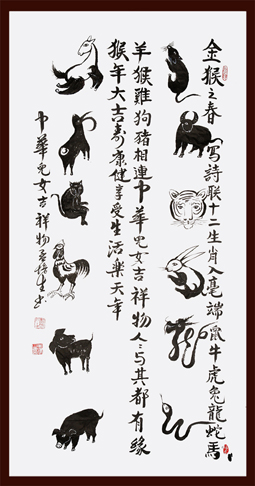 金猴之春寫詩联十二生肖入毫端鼠牛虎兔龍蛇馬
羊猴雞狗豬相連中華兒女吉祥物人々与其都有緣
猴年大吉壽康健享受生活樂天年
中華兒女吉祥物